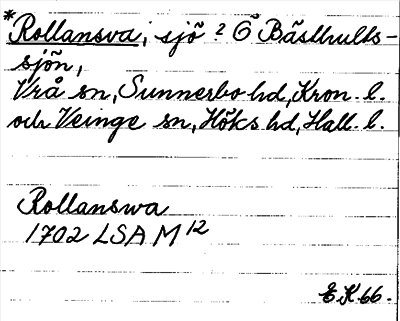 *Rollansva, sjö ? Ö Bästhults-
sjön,
Vrå sn, Sunnerbo hd, Kron. l.
och Veinge sn, Höks hd, Hall. l.
Rollanswa
1702 LSA M 12
E K 66.